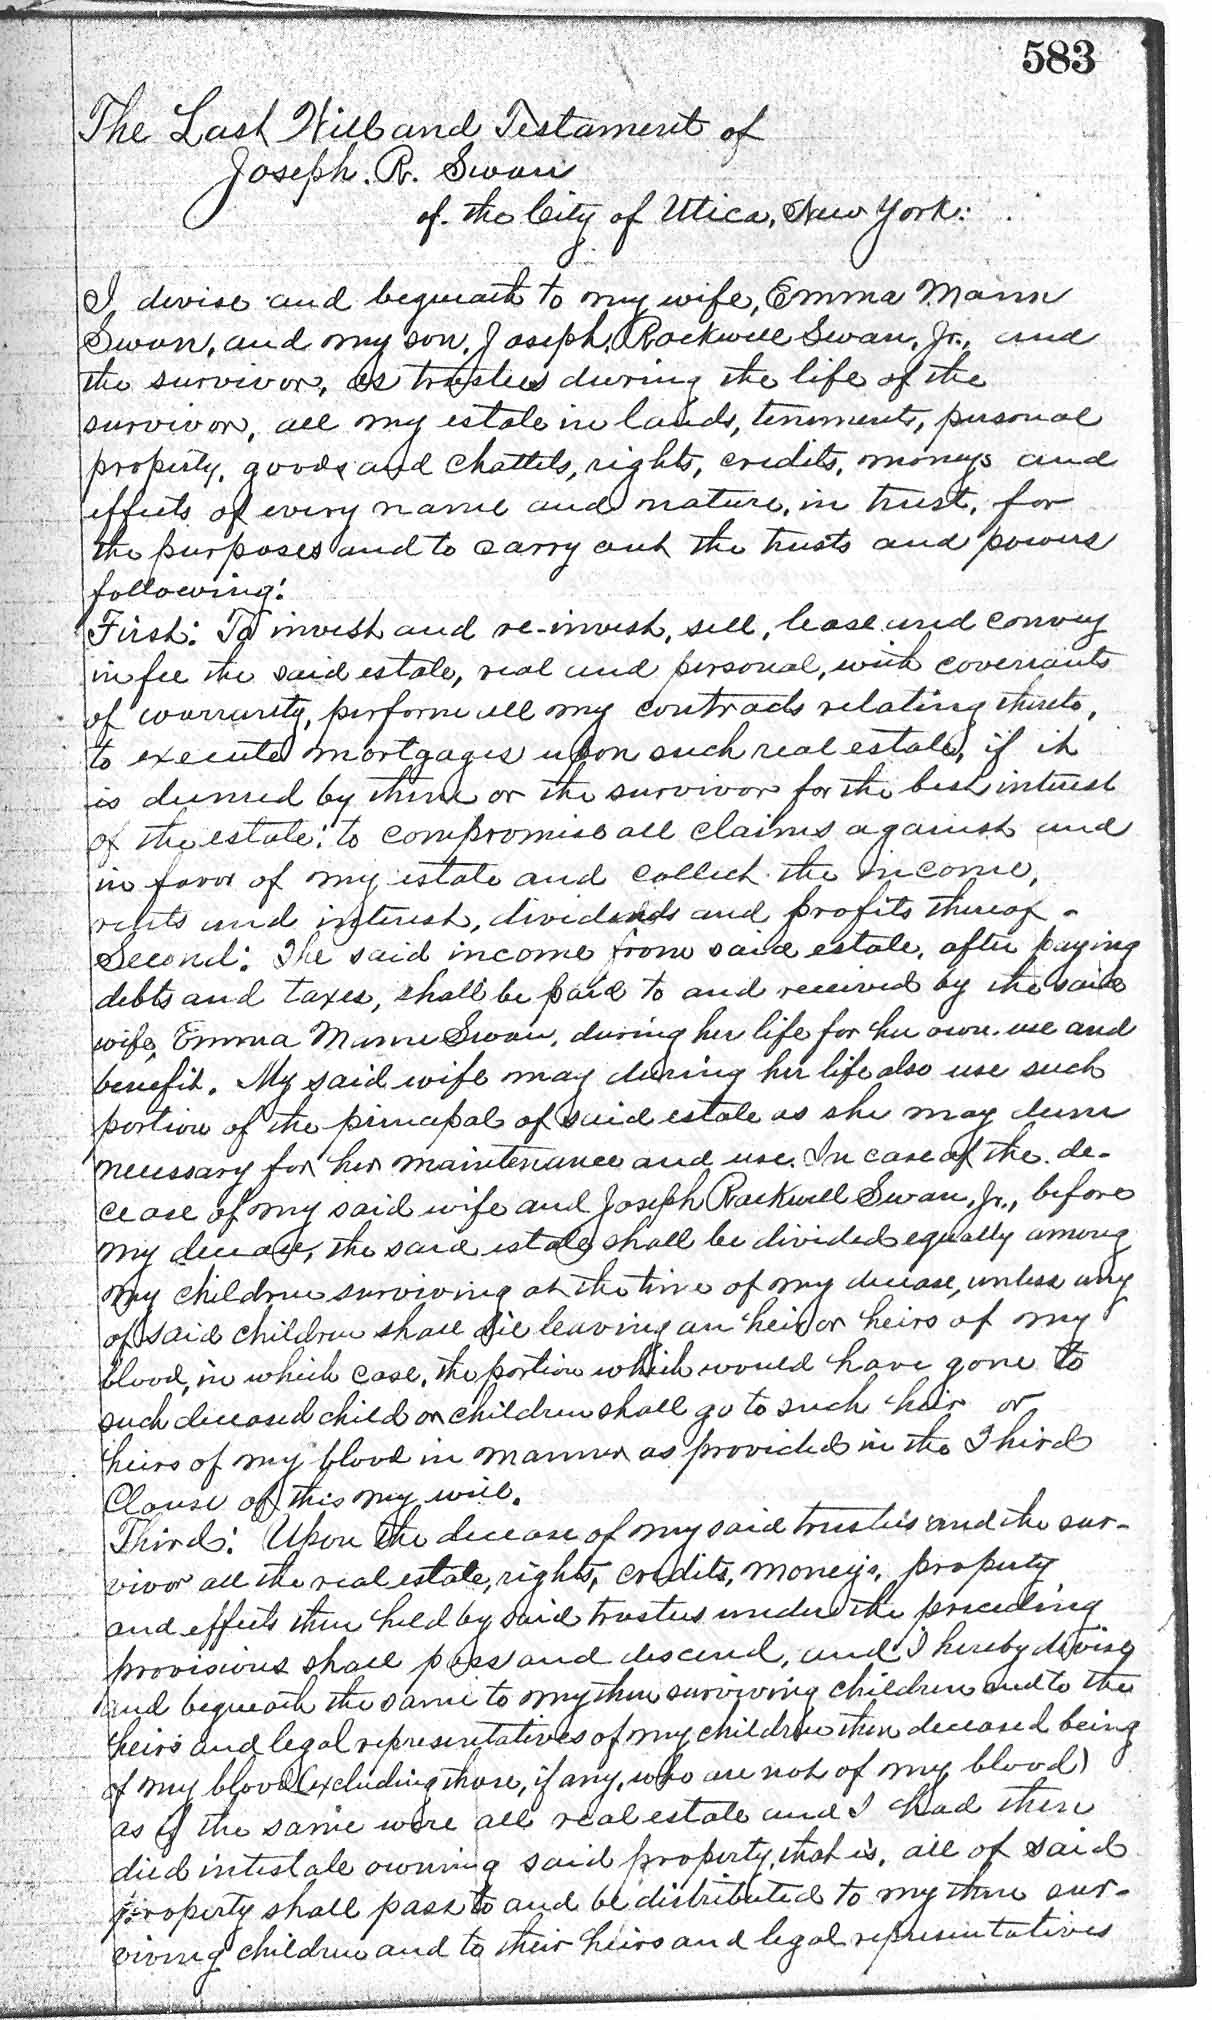 583
The Last Will and Testament of
Joseph. R. Swan
of the City of Utica, New York.
I, devise and bequeath to my wife, Emma Mann
Swan, and my son, Joseph Rockwell Swan, Jr., and
the survivor, as trustees during the life of the
survivor, all my estate in lands, tenements, personal
property, goods and chattels, rights, credits, moneys and
effects of every name and nature, in trust, for
the purposes and to carry out the trusts and powers
following:
First: To invest and re-invest, sell, lease and convey
in fee the said estate, real and personal, with covenants
of warranty, perform all my contracts relating thereto,
to execute mortgages upon such real estate, if it
is deemed by them or the survivor for the best interest
of the estate; to compromise all claims against and
in favor of my estate and collect the income,
rents and interest, dividends and profits thereof -
Second: The said income from said estate, after paying
debts and taxes, shall be paid to and received by the said
wife, Emma Mann Swan, during her life for her own use and
benefit. My said wife may during her life also use such
portion of the principal of said estate as she may deem
necessary for her maintenance and use. In case of the de-
cease of my said wife and Joseph Rockwell Swan, Jr., before
my decease, the said estate shall be divided equally among
my children surviving at the time of my decease, unless any
of said children shall die leaving an heir or heirs of my
blood, in which case, the portion which would have gone to
such deceased child or children shall go to such heir or
heirs of my blood in manner as provided in the Third
Clause of this my will.
Third: Upon the decease of my said trustees and the sur-
vivor all the real estate, rights, credits, moneys, property
and effects then held by said trustees under the preceding
provisions shall pass and descend, and I hereby devise
and bequeath the same to my then surviving children and to the
heirs and legal representatives of my children then deceased being
of my blood (excluding those, if any, who are not of my blood)
as if the same were all real estate and I had then
died intestate owning said property, that is, all of said
property shall pass to and be distributed to my then sur-
viving children and to their heirs and legal representatives